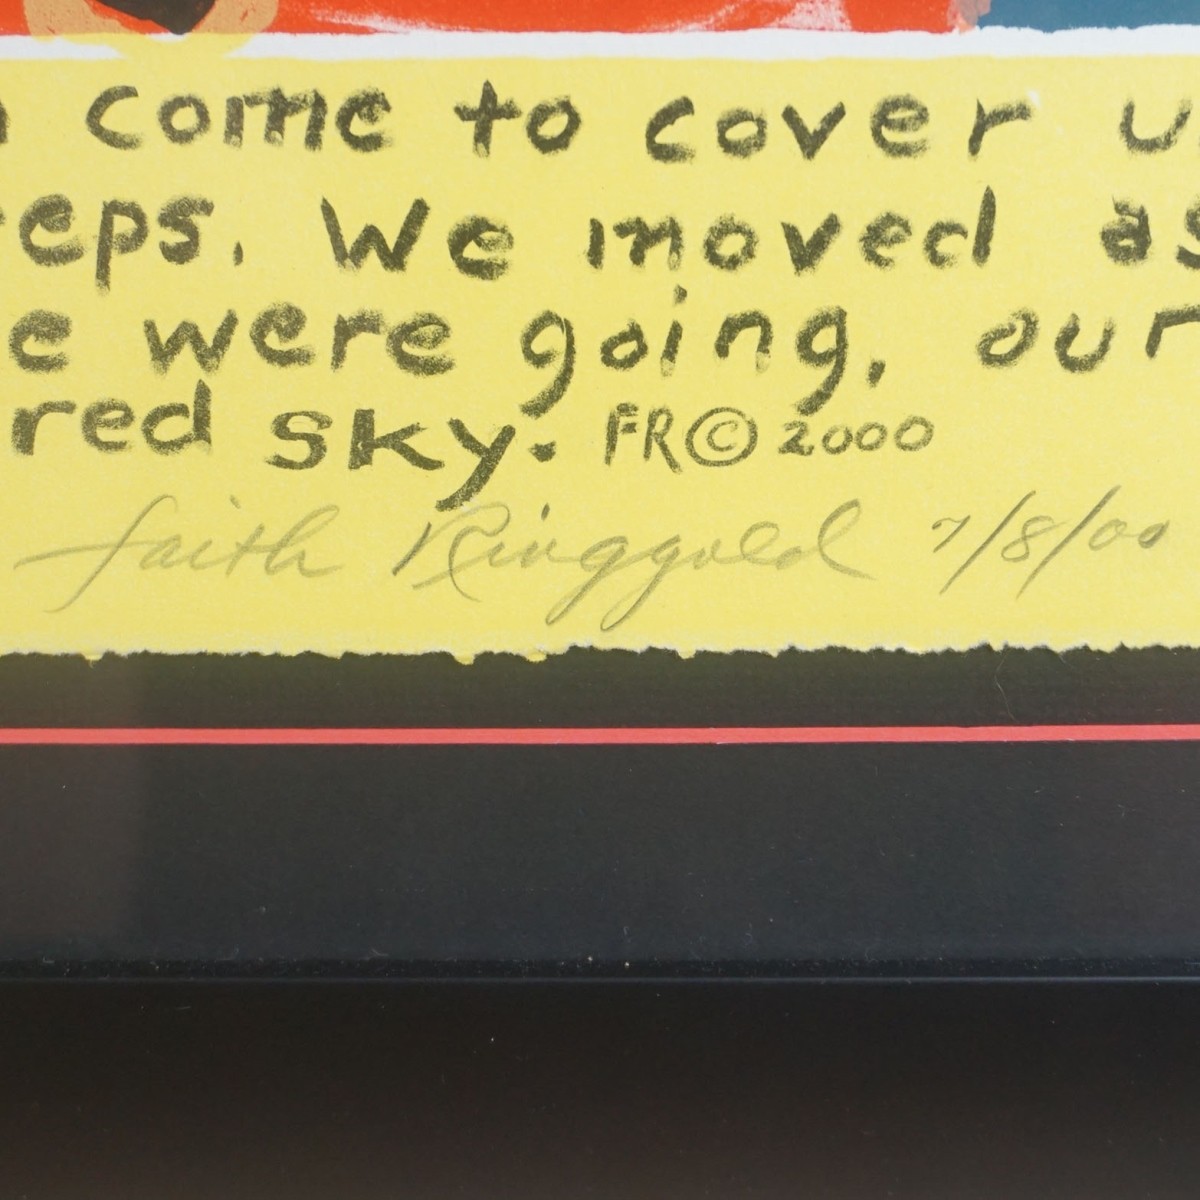 come to cover
eps. We moved as
e were going, our
red sky. FR © 2000
Faith Ringgold 7/8/00